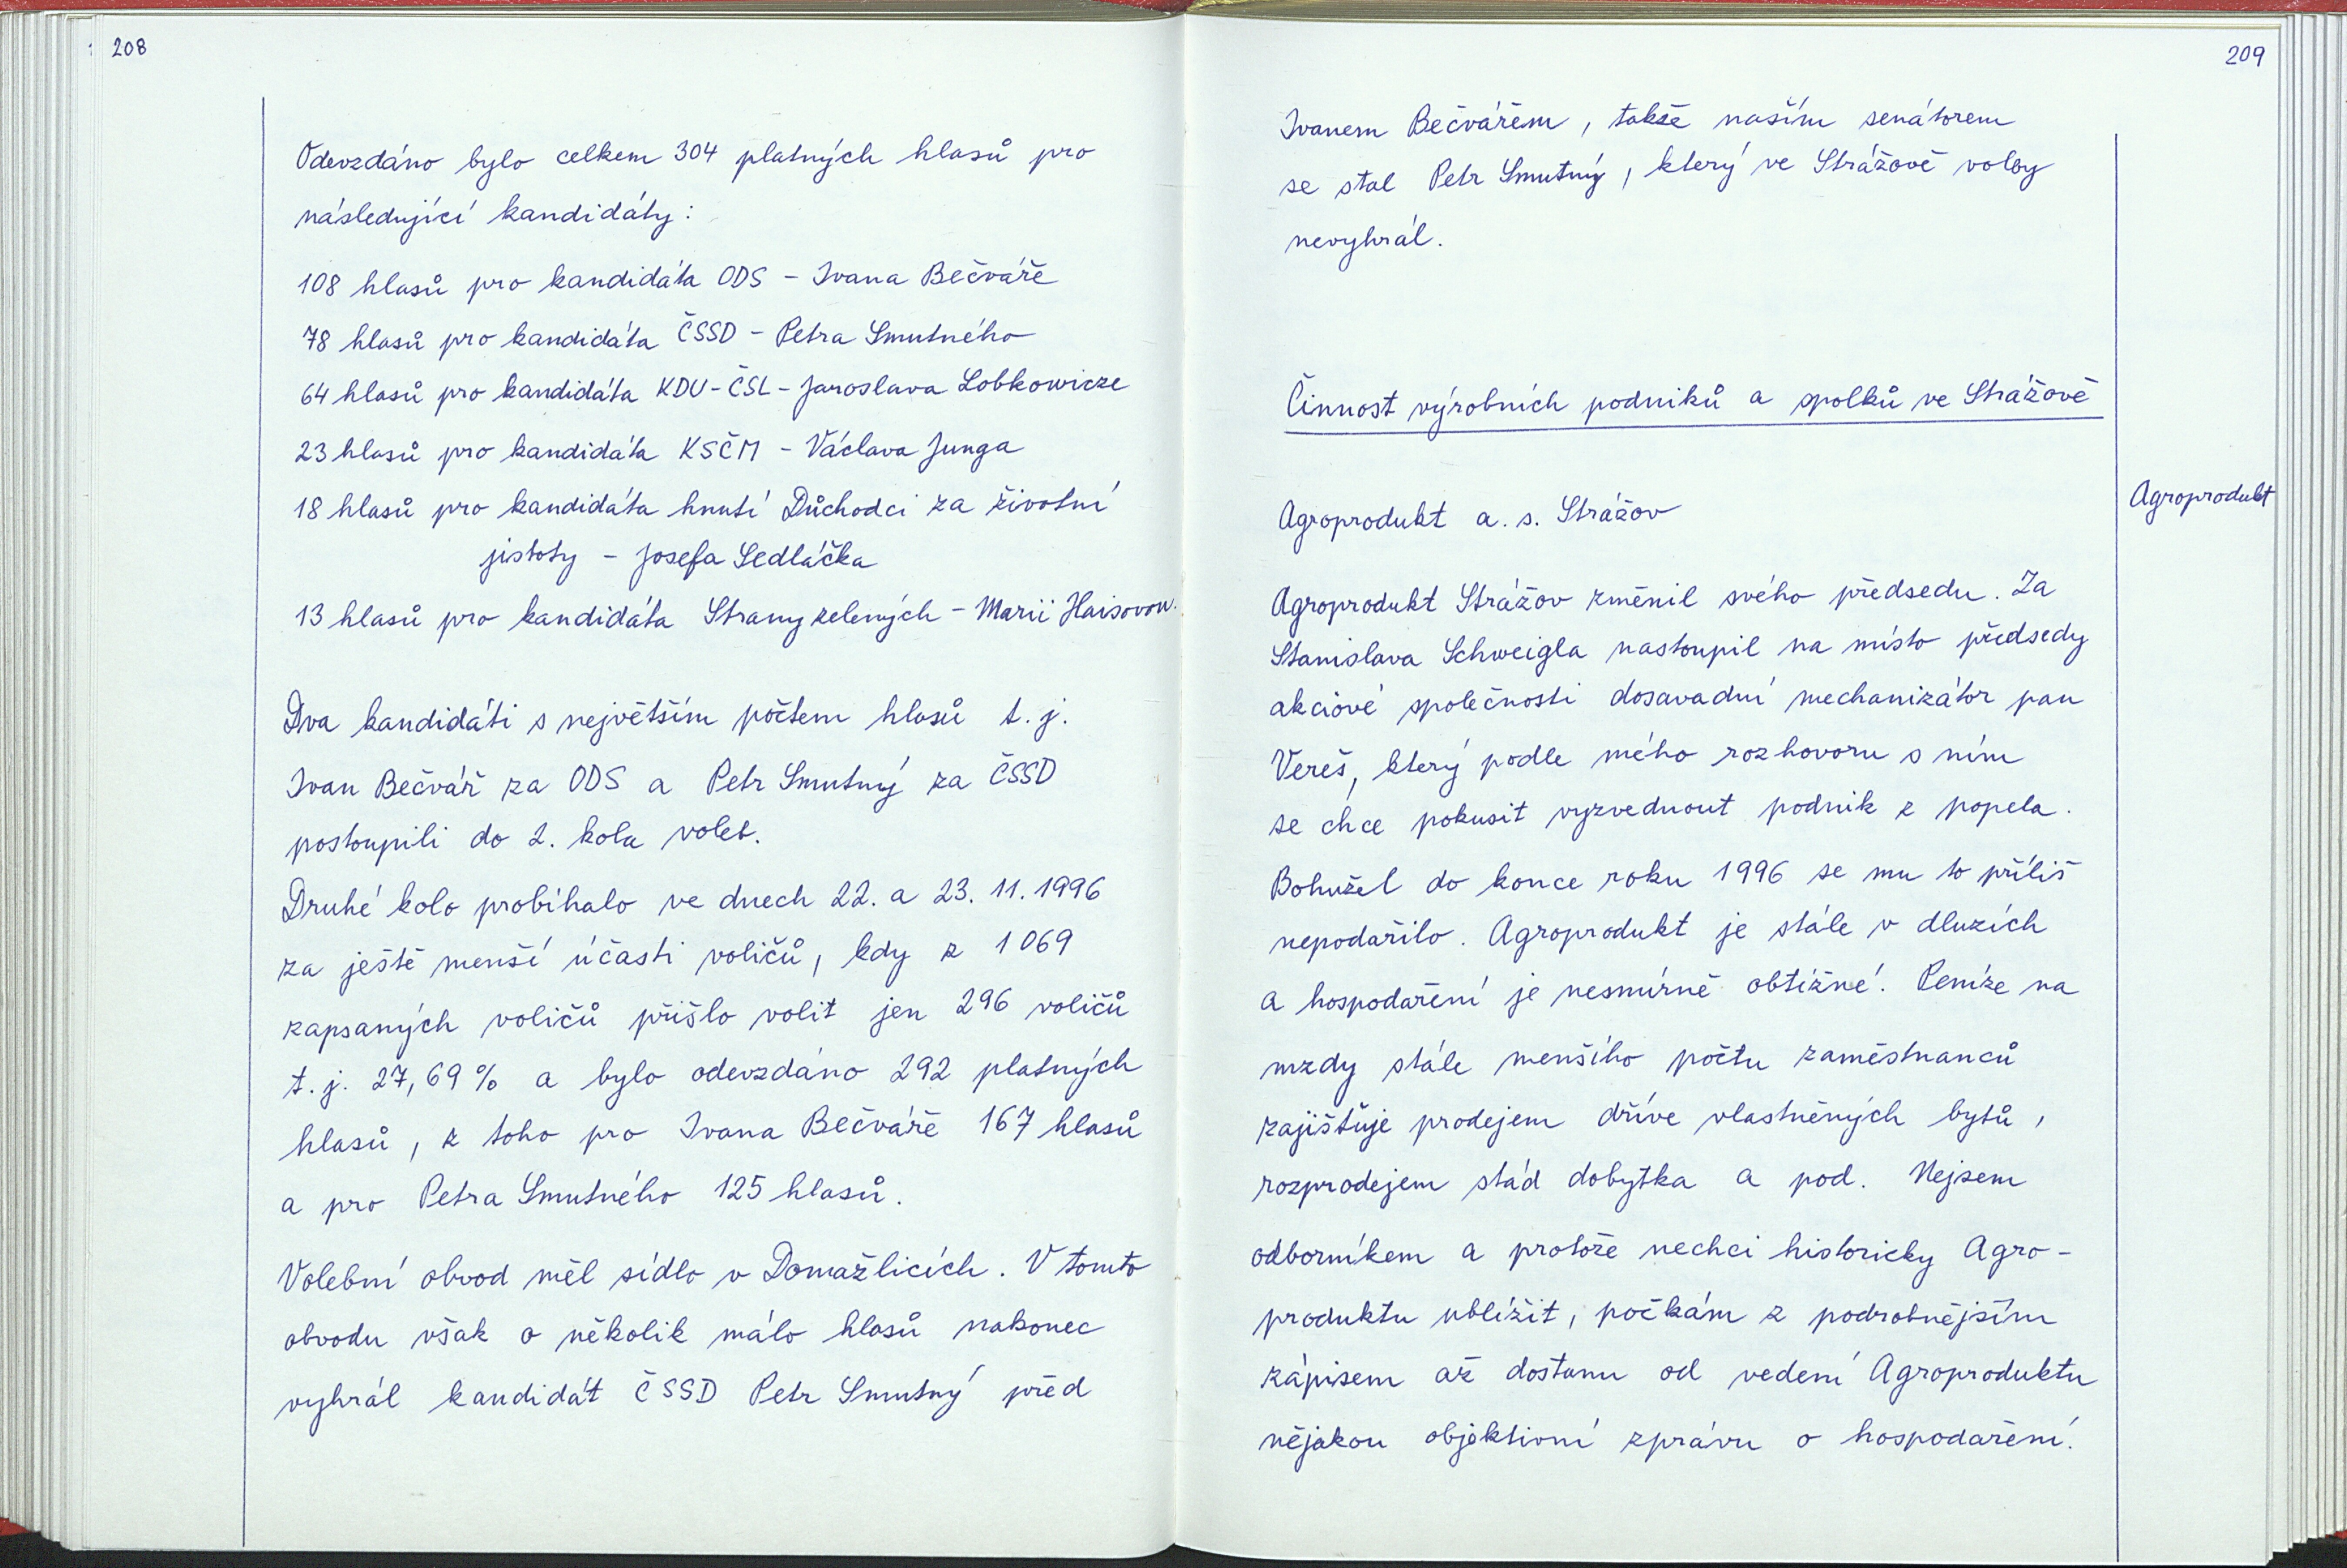 208
Odevzdáno bylo celkem 304 platných hlasů pro
následující kandidáty:
108 hlasů pro kandidáta ODS - Ivana Bečváře
78 hlasů pro kandidáta ČSSD - Petra Smutného
64 hlasů pro kandidáta KDU-ČSL - Jaroslava Lobkowicze
23 hlasů pro kandidáta KSČM - Václava Junga
18 hlasů pro kandidáta hnutí Důchodci za životní
jistoty - Josefa Sedláčka
13 hlasů pro kandidáta Strany zelených - Marii Haisovou.
Dva kandidáti s největším počtem hlasů t. j.
Ivan Bečvář za ODS a Petr Smutný za ČSSD
postoupili do 2. kola voleb.
Druhé kolo probíhalo ve dnech 22. a 23. 11. 1996
za ještě menší účasti voličů, kdy z 1 069
zapsaných voličů přišlo volit jen 296 voličů
t. j. 27,69 % a bylo odevzdáno 292 platných
hlasů, z toho pro Ivana Bečváře 167 hlasů
a pro Petra Smutného 125 hlasů.
Volební obvod měl sídlo v Domažlicích. V tomto
obvodu však o několik málo hlasů nakonec
vyhrál kandidát ČSSD Petr Smutný před
209
Ivanem Bečvářem, takže naším senátorem
se stal Petr Smutný, který ve Strážově volby
nevyhrál.
Činnost výrobních podniků a spolků ve Strážově
Agroprodukt
Agroprodukt a. s. Strážov
Agroprodukt Strážov změnil svého předsedu. Za
Stanislava Schweigla nastoupil na místo předsedy
akciové společnosti dosavadní mechanizátor pan
Vereš, který podle mého rozhovoru s ním
se chce pokusit vyzvednout podnik z popela.
Bohužel do konce roku 1996 se mu to příliš
nepodařilo. Agroprodukt je stále v dluzích
a hospodaření je nesmírně obtížné. Peníze na
mzdy stále menšího počtu zaměstnanců
zajišťuje prodejem dříve vlastněných bytů,
rozprodejem stád dobytka a pod. Nejsem
odborníkem a protože nechci historicky Agro-
produktu ublížit, počkám z podrobnějším
zápisem až dostanu od vedení Agroproduktu
nějakou objektivní zprávu o hospodaření.